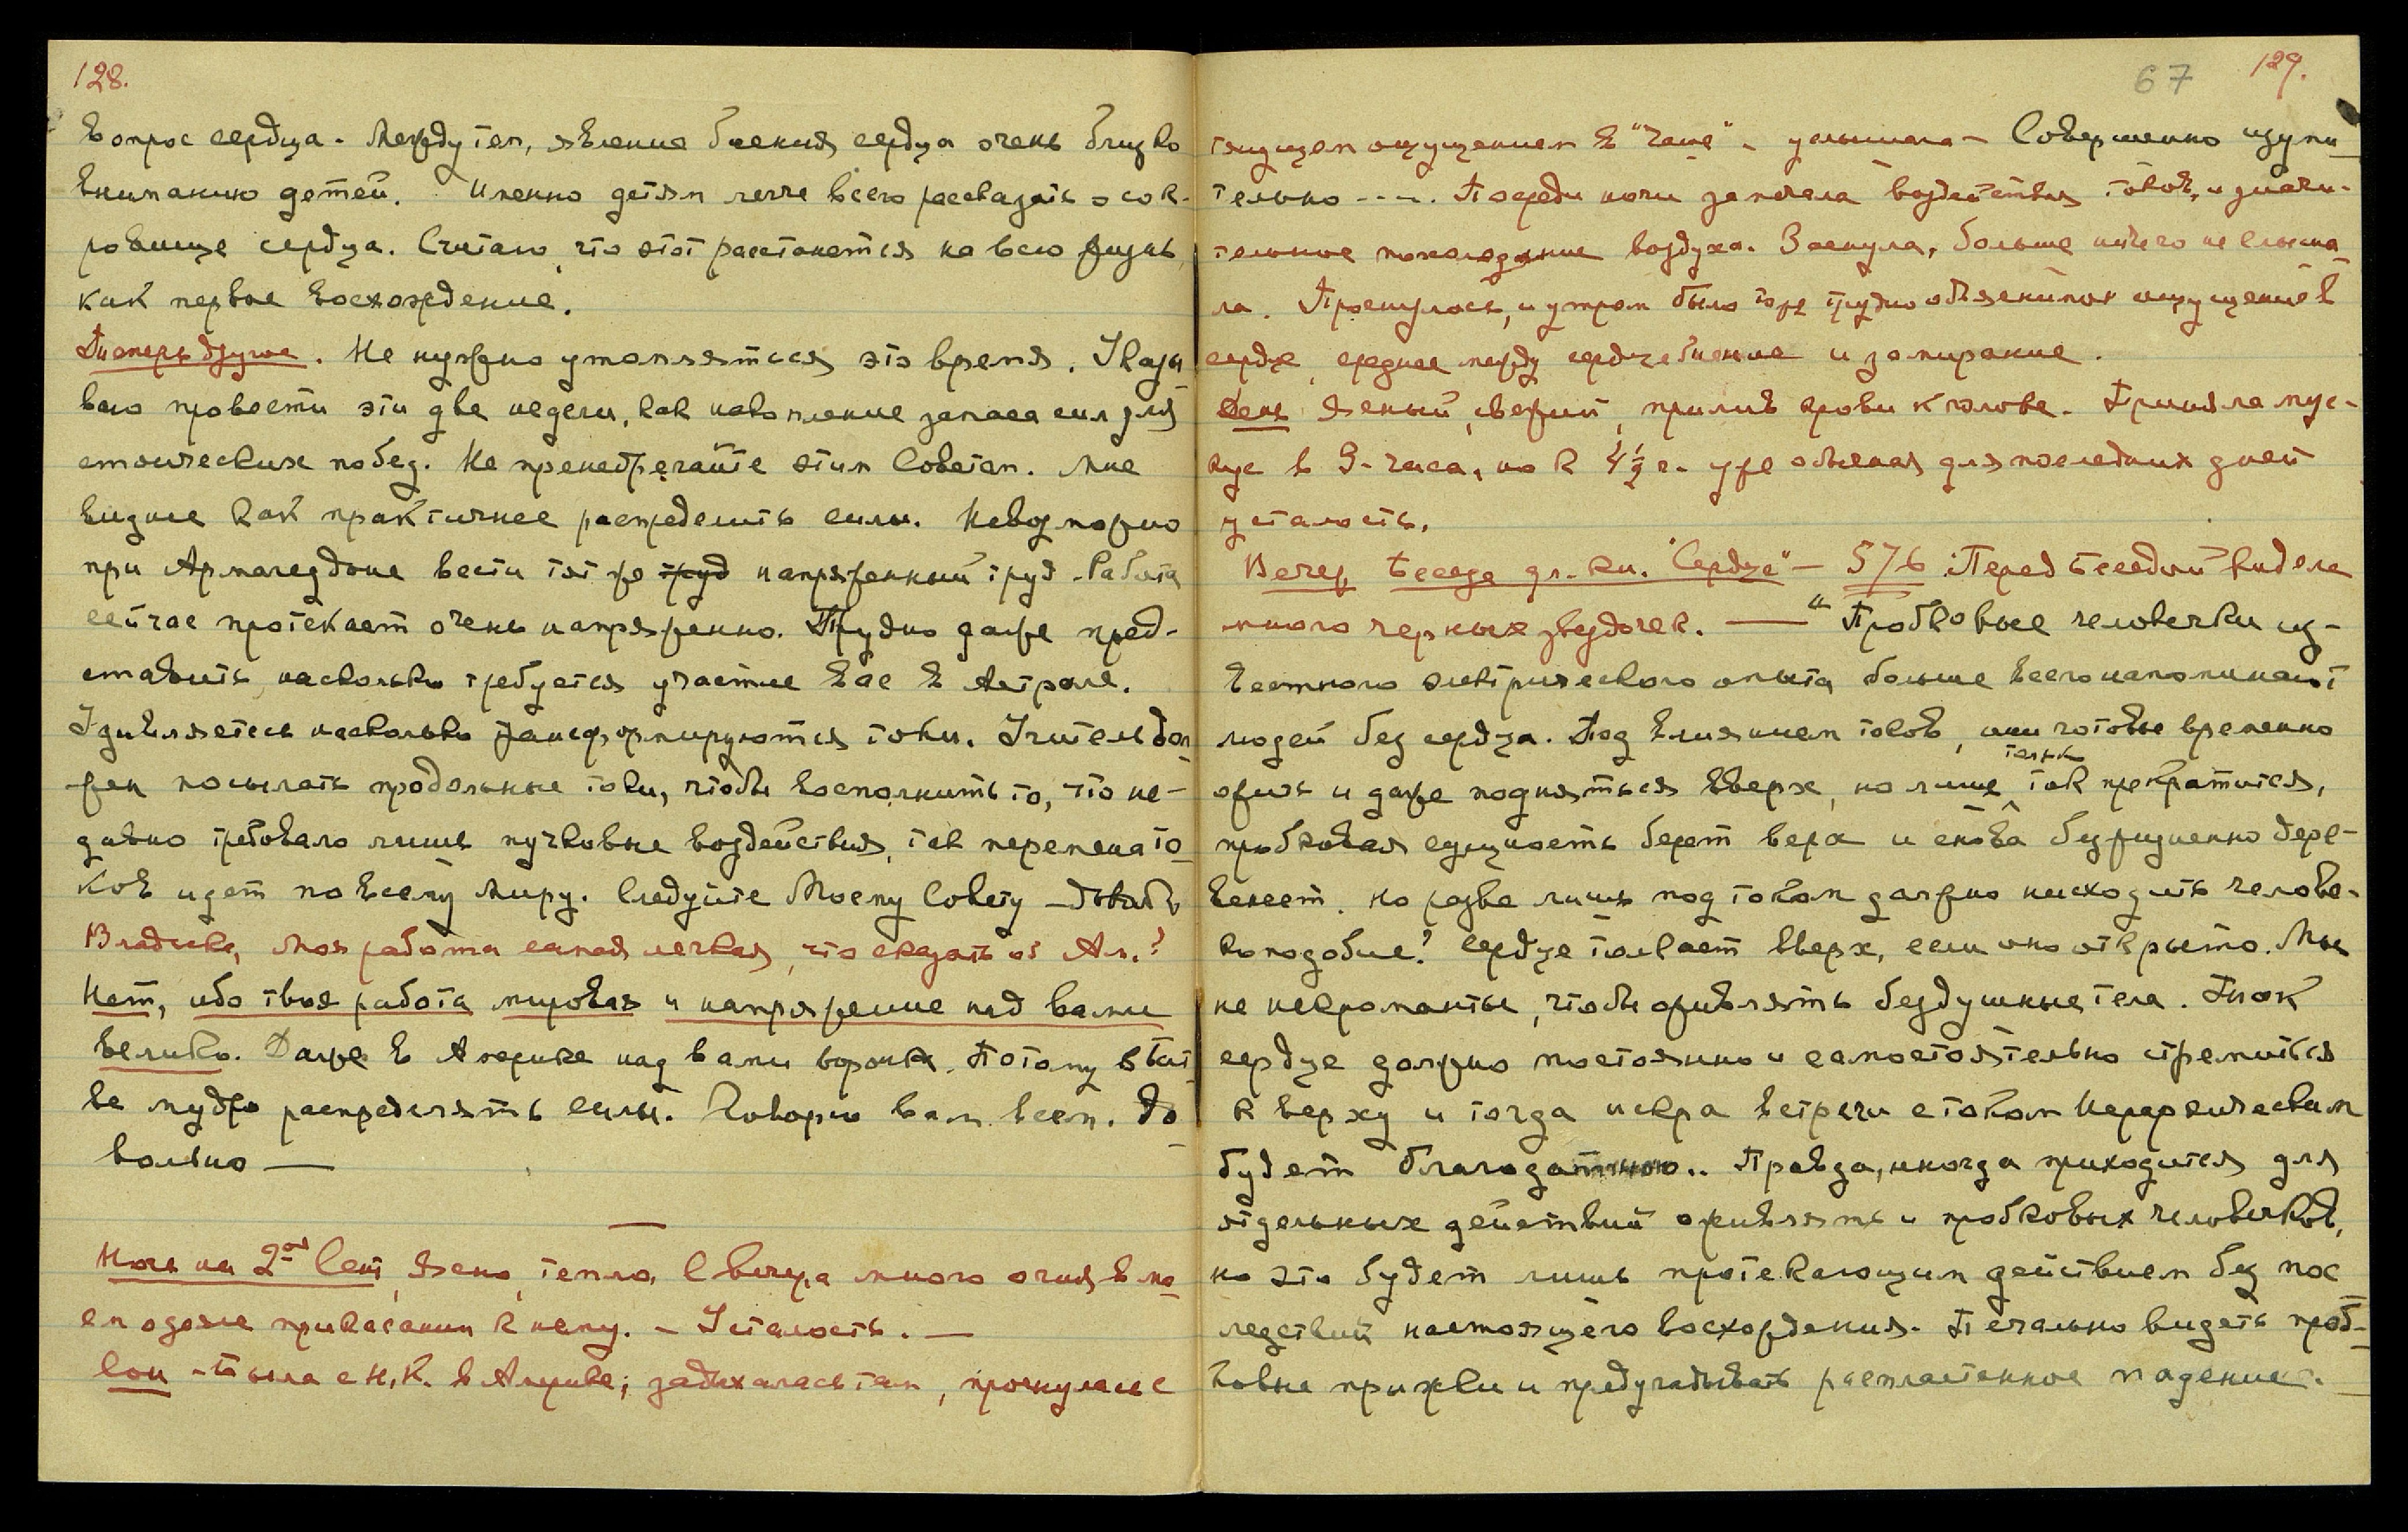 128.
вопрос сердца. Между тем, явление биения сердца очень близко
вниманию детей. Именно детям легче всего рассказать о сок-
ровище сердца. Считаю, что этот расстанется на всю жизнь,
как первое восхождение.
Теперь другое. Не нужно утомляться это время. Указы
ваю провести эти две недели, как накопление запаса сил для
стоических побед. Не пренебрегайте этим Советом. Мне
виднее как практичнее распределить силы. Невозможно
при Армагеддоне вести тот же труд напряженный труд. Работа
сейчас протекает очень напряженно. Трудно даже пред-
ставить, насколько требуется участие Вас в Астрале.
Удивляетесь насколько трансформируются токи. Учитель дол
жен посылать продольные токи, чтобы восполнить то, что не-
давно требовало лишь пучковые воздействия, так перемена то
ков идет по всему Миру. Следуйте Моему Совету –
Владыка, моя работа самая легкая, что сказать об Ам.?
Нет, ибо твоя работа мировая и напряжение над вами
велико. Даже в Америке над вами воронка. Потому в бит
ве мудро распределять силы. Говорю вам всем. До
вольно —
Ночь на 2ое Сент, Ясно, тепло, С вечера много огня в мо
ем одеяле прикасании к нему. – Усталость. —
Сон – Была с Н.К. в Америке; задыхалась там, проснулась с
67 129.
тянущем ощущением в "Чаше" – услышала – Совершенно изуми
тельно ---. Посреди ночи заметила воздействия токов, и значи-
тельное похолодание воздуха. Заснула, больше ничего не слыша
ла. Проснулась, и утром было трудно объяснимых ощущение в
сердце, среднее между сердцебиение и замирание.
День Ясный, свежий, прилив крови к голове. Приняла мус-
кус в 3- часа, но к 4½ ч. уже обычная для последних дней
усталость.
Вечер Беседа дл. кн. "Сердце" – 576. Перед Беседой видела
много черных звездочек. — "Пробковые человечки из-
вестного электрического опыта больше всего напоминают
людей без сердца. Под влиянием токов, они готовы временно
только
ожить и даже подняться вверх, но лише ток прекратится,
пробковая сущность берет верх и снова безжизненно дере-
венеет. Но разве лишь под током должно нисходить челове-
коподобие? Сердце толкает вверх, если оно открыто. Мы
не некроманты, чтобы оживлять бездушные тела. Так
сердце должно постоянно и самостоятельно стремиться
к верху и тогда искра встречи с током Иерархическим
будет благодатною.. Правда, иногда приходится для
отдельных действий оживлять и пробковых человечков,
но это будет лишь протекающим действием без пос
ледствий настоящего восхождения. Печально видеть проб-
ковые прыжки и предугадывать распластанное падение.